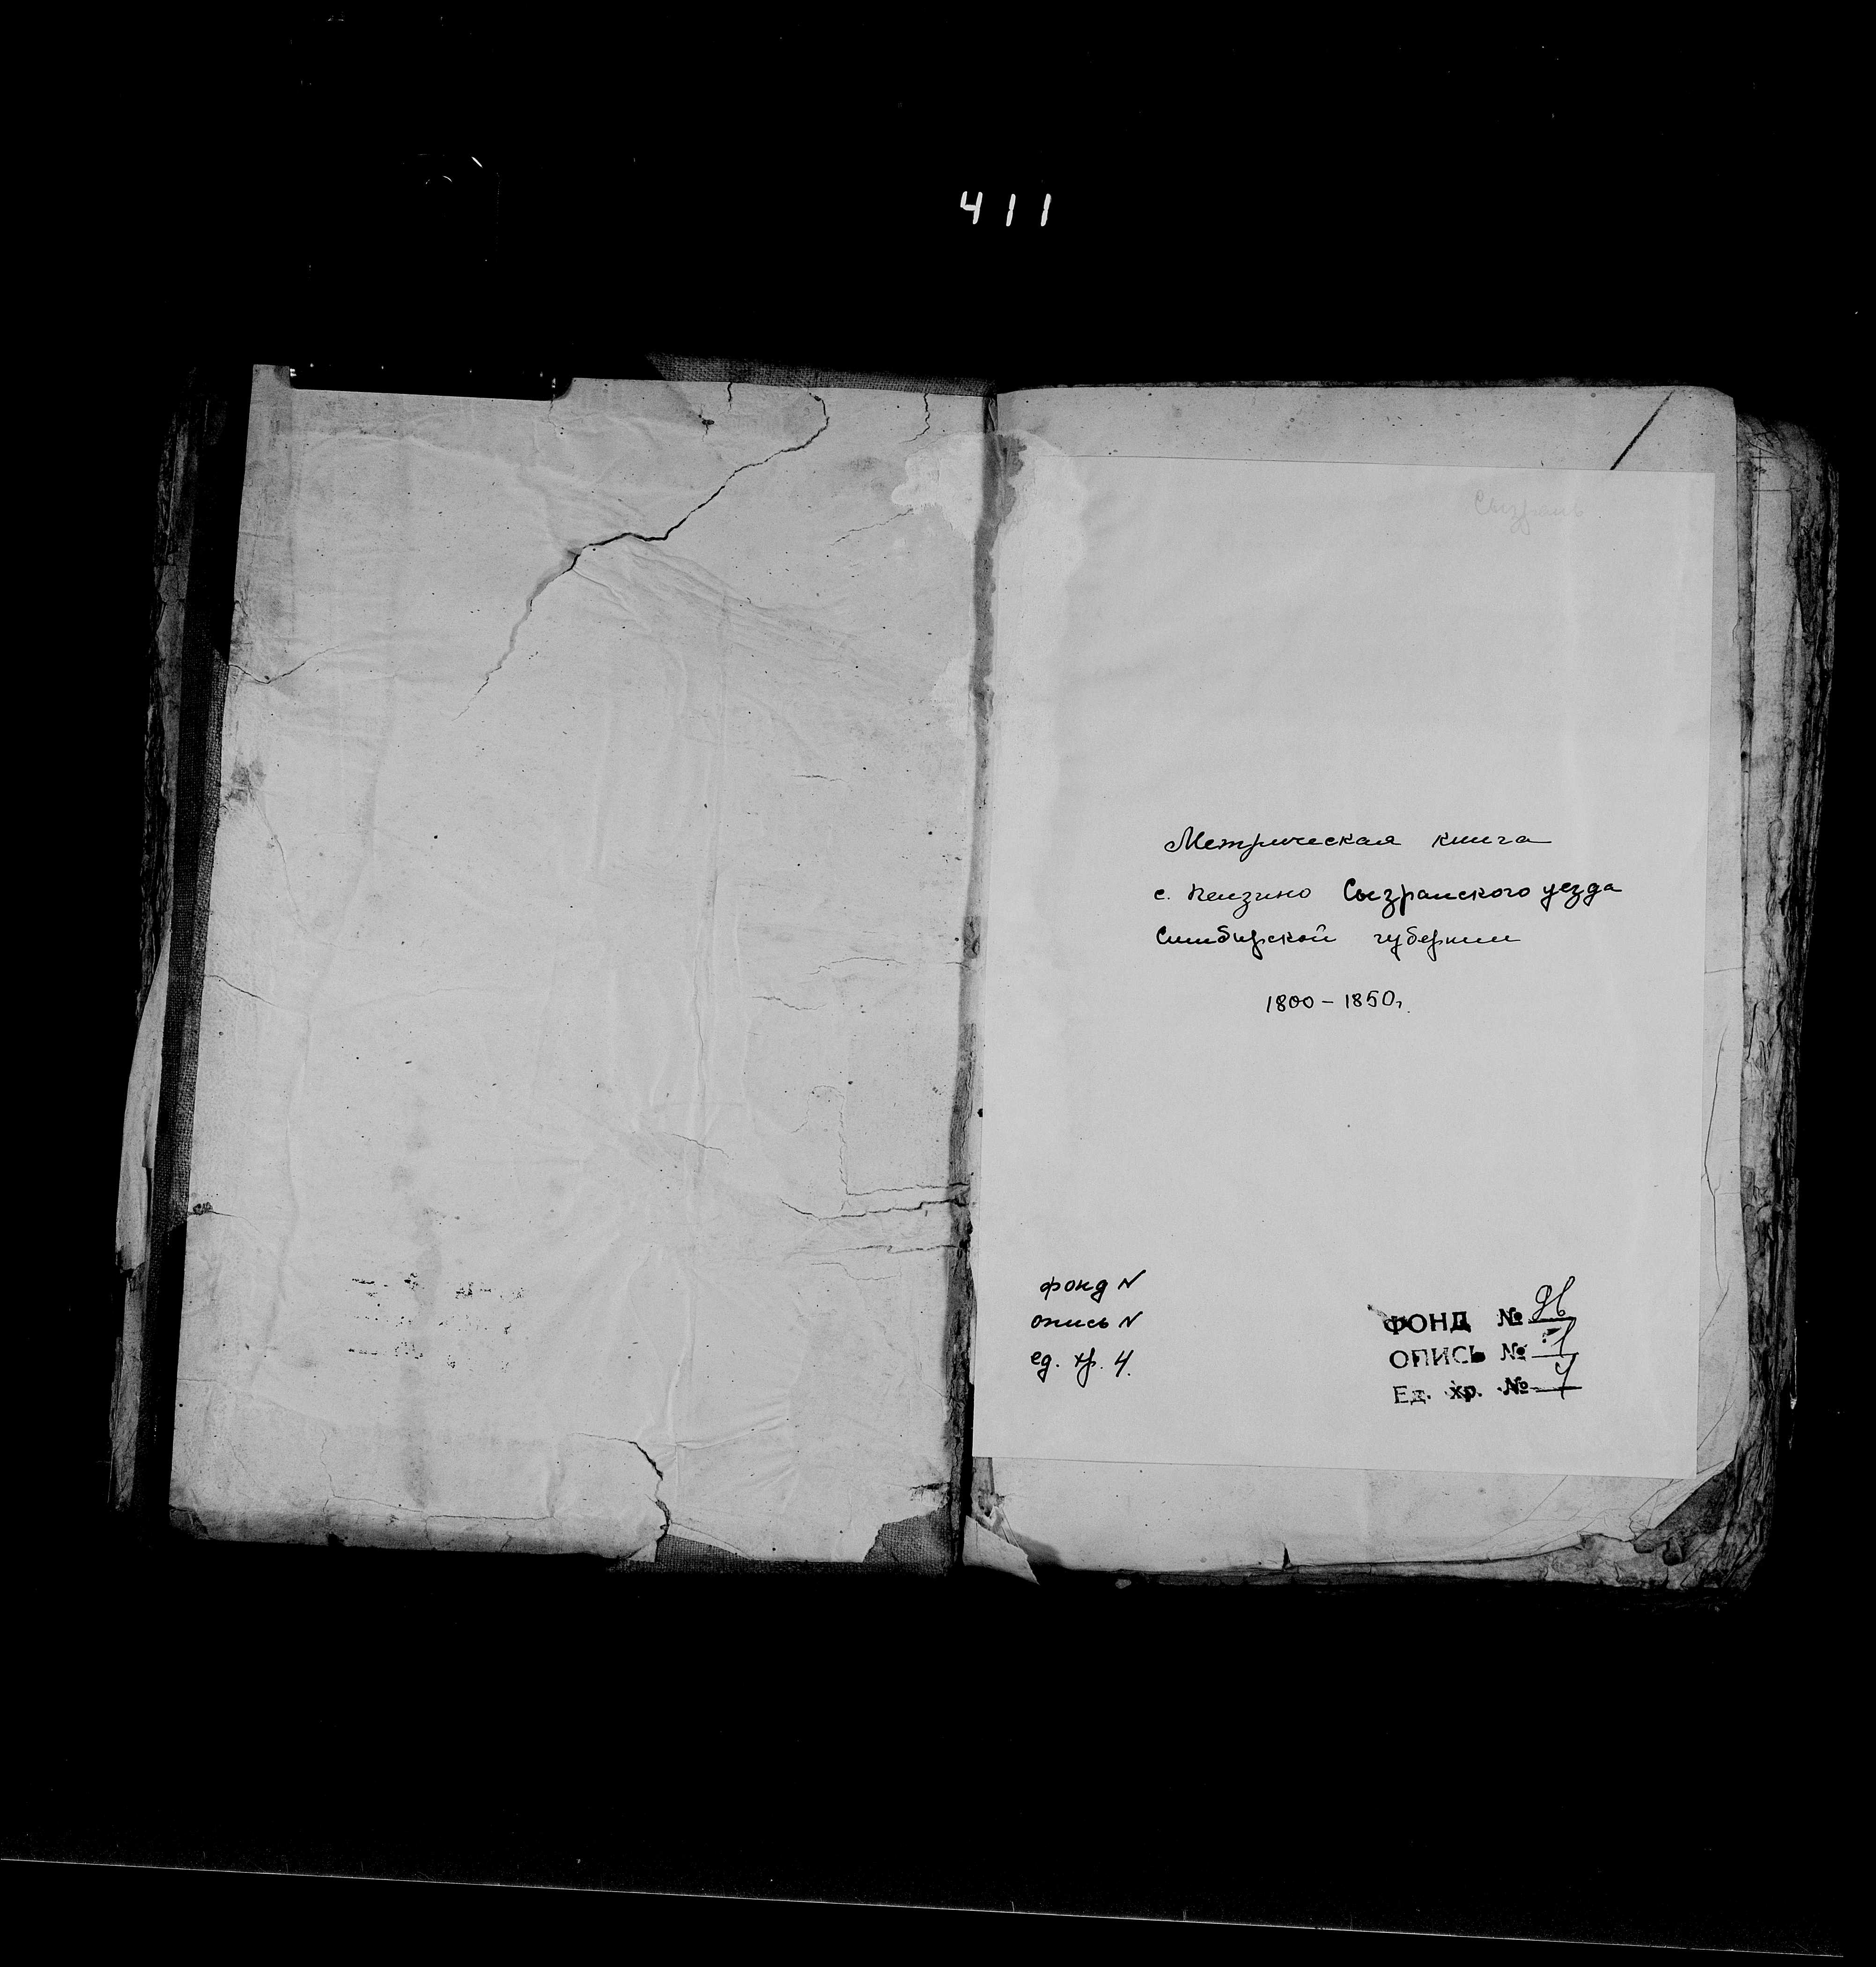 411
Сызрань
Метрическая книга
с. Кензино Сызранского уезда
Симбирской губернии
1800 – 1850г.
фонд N
опись N
ед. хр. 4.
ФОНД № 96
ОПИСЬ № 1
Ед. хр. № 4